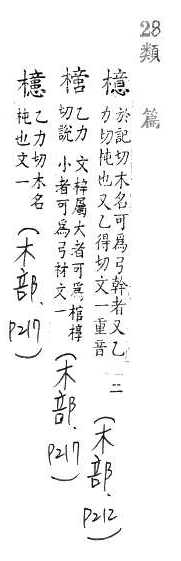 28類 篇
檍 於記切木名可爲弓幹者又乙
力切杶也又乙得切文一重音
二 (木部. P212)
㯖 乙力 文梓屬大者可爲棺椁
切說 小者可爲弓材文一 (木部. P217)
檍 乙力切木名
杶也文一 (木部. P217)